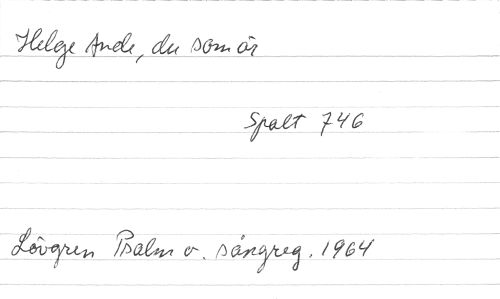 Helge Ande, du som är
Spalt 746
Lövgren Psalm o. sångreg. 1964